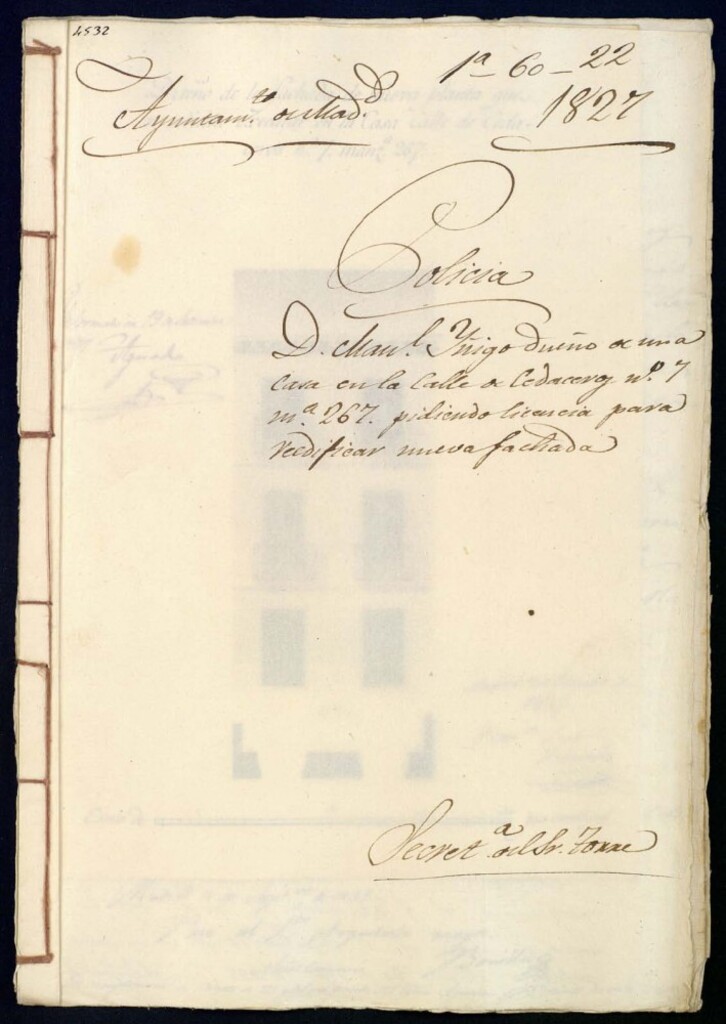 4532
1ª 60-22
Ayuntam.to de Mad.d 1827
Policia
D. Man.l Yñigo dueño de una
casa en la Calle de Cedaceros n.º 7
m.ª 267. pidiendo licencia para
reedificar nueva fachada
Secret.ª del Sr. Torre